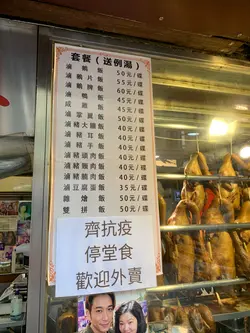 套餐（送例湯）
滷鵝飯 50元/碟
滷鵝片飯 55元/碟
滷鵝髀飯 60元/碟
滷鴨飯 45元/碟
咸雞飯 45元/碟
滷掌翼飯 50元/碟
滷豬大腸飯 40元/碟
滷豬耳飯 40元/碟
滷豬手飯 40元/碟
滷豬頭肉飯 40元/碟
滷豬腩肉飯 40元/碟
滷豬脷肉飯 40元/碟
滷豆腐蛋飯 35元/碟
雜燴飯 50元/碟
雙拼飯 50元/碟
齊抗疫
停堂食
歡迎外賣